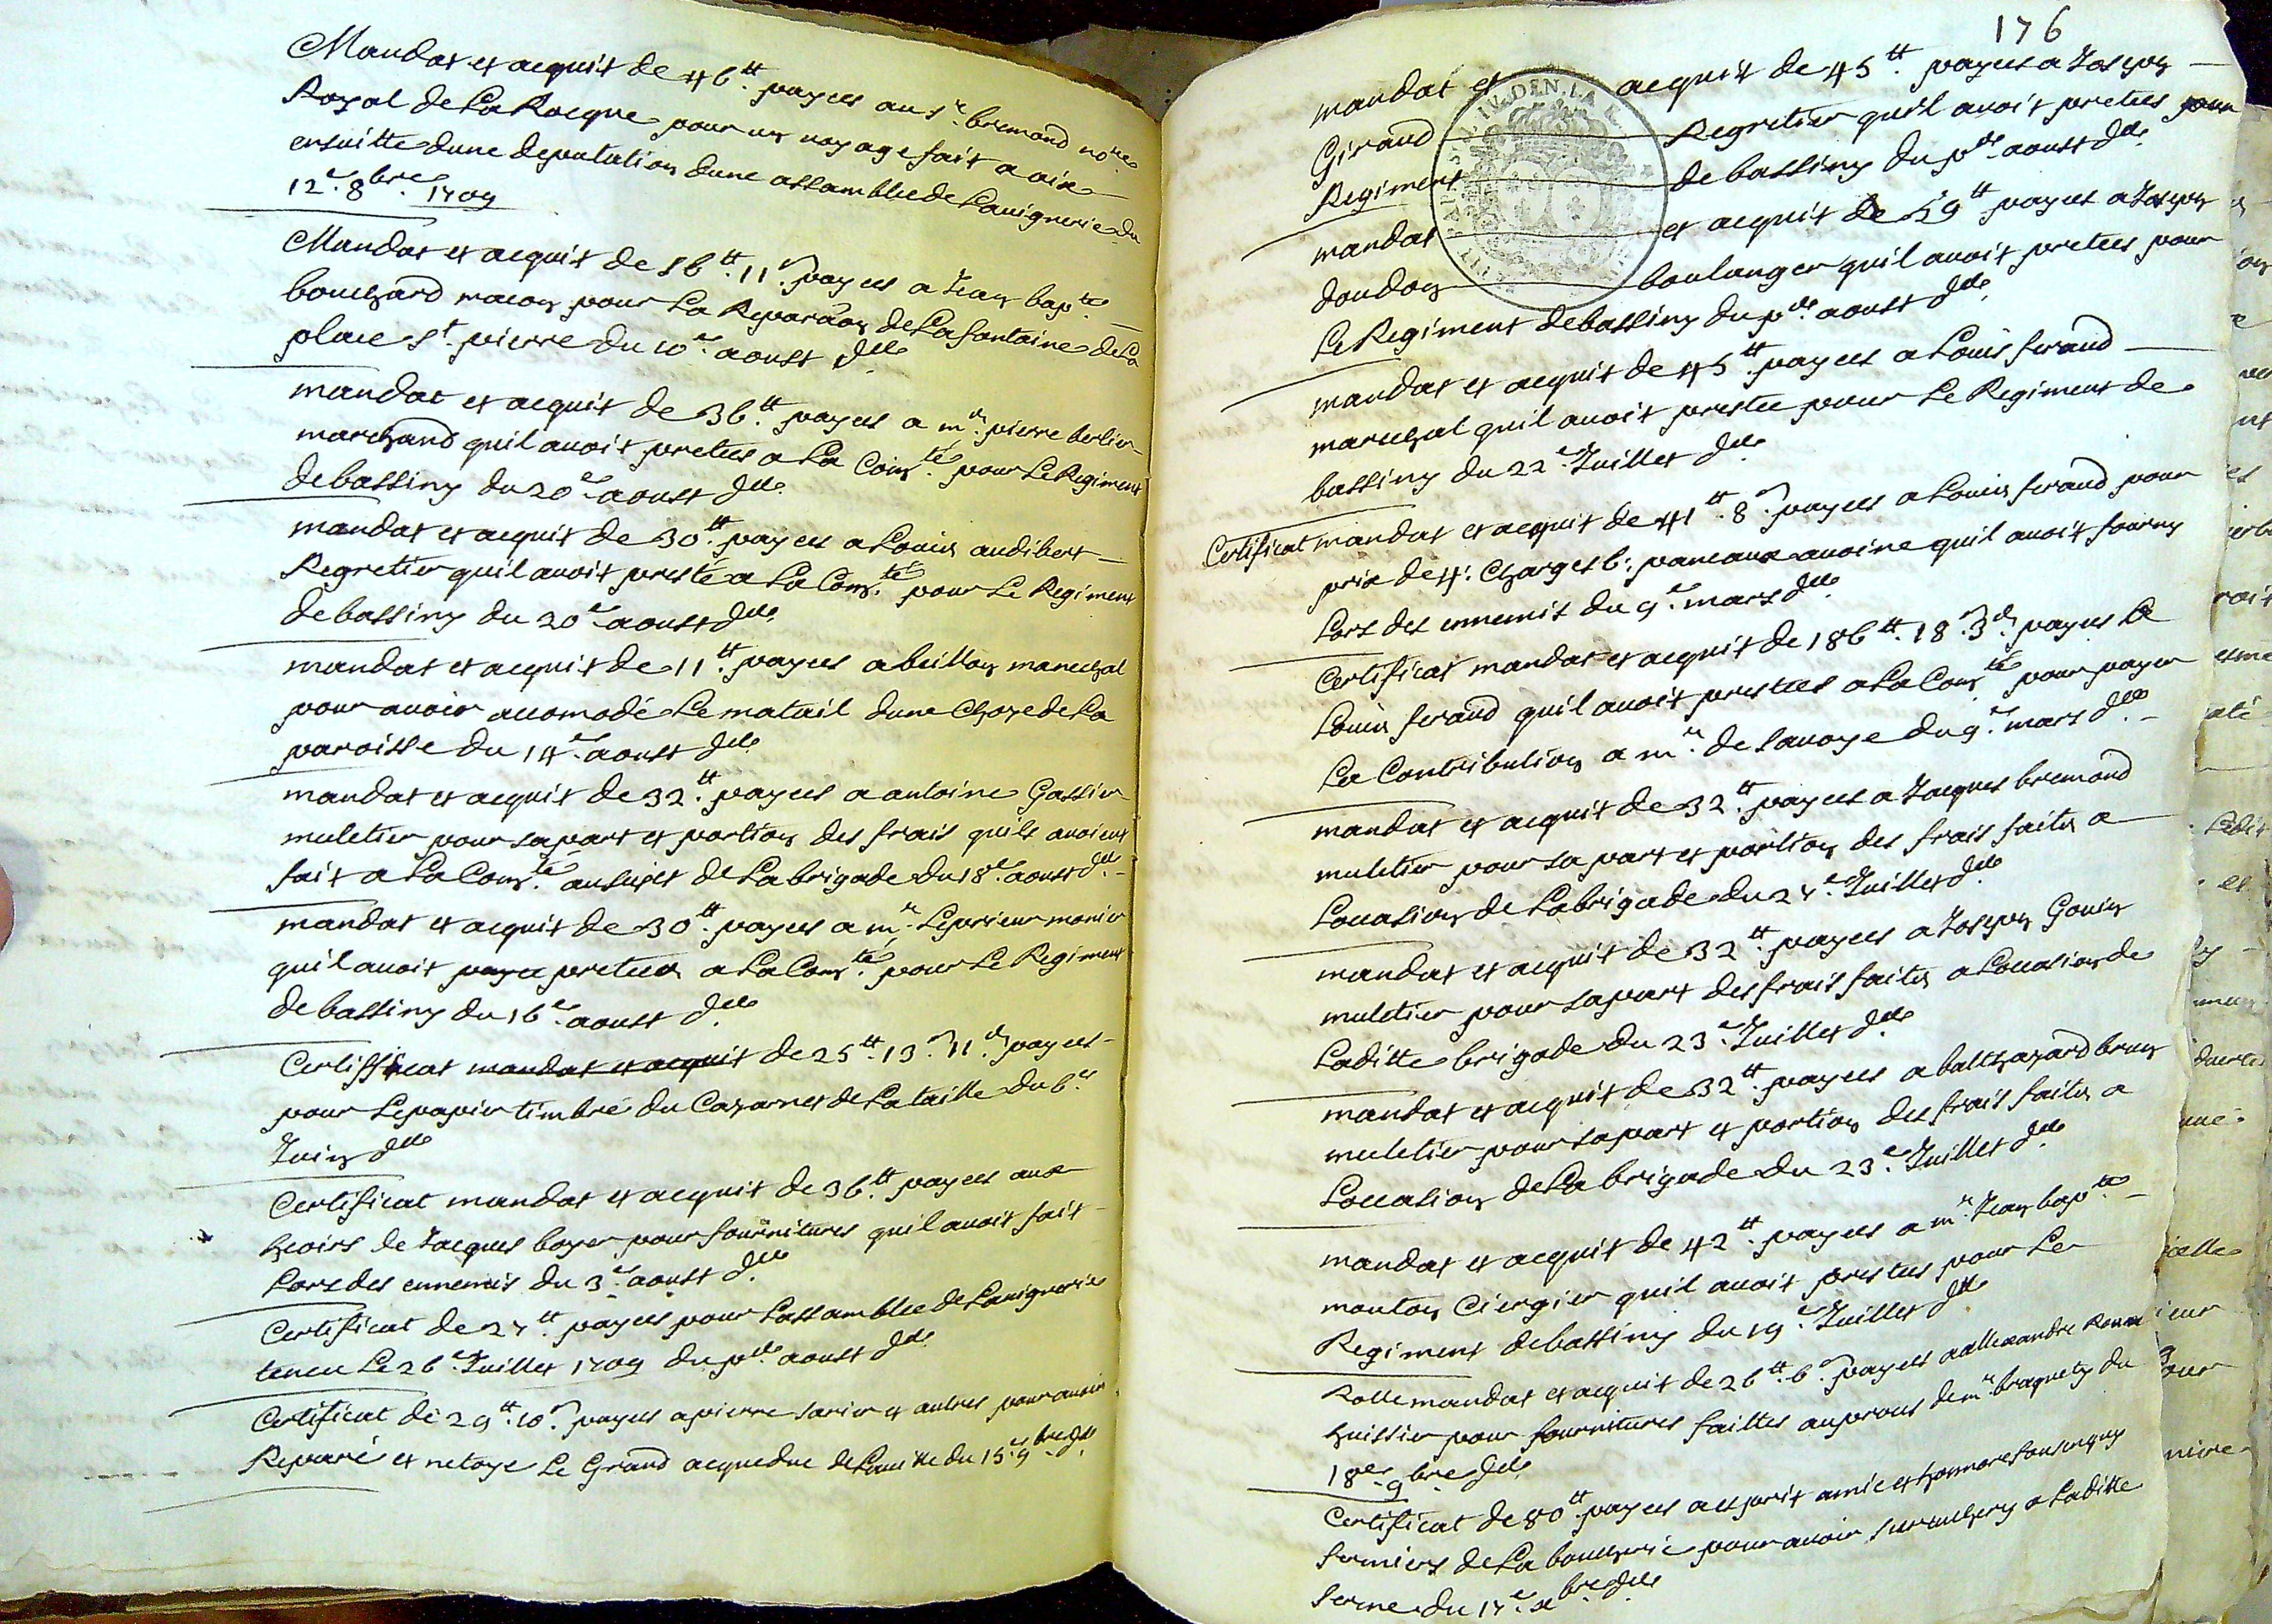 Mandat et acquit de 46tt. payees au sr. bremond no.re
Royal de La Rocque pour un voyage fait a aix
ensuitte dune deputation dune assamblee de Laviguerie du
12e. 8bre. 1709
Mandat et acquit de 56tt. 11s. payees a Jean bapte.
bouchard macon pour La Reparaon de La fontaine de La
place st. pierre du 10e. aoust dt.
mandat et acquit de 36tt. payees a mr. pierre berlier
marchand quil avoit pretees a La Comté. pour Le Regiment
de bassiny du 20e. aoust dt.
mandat et acquit de 30tt. payees a Louis audibert
Regretier quil avoit presté a La Comté. pour Le Regiment
de bassiny du 20e. aoust dt.
mandat et acquit de 11tt. payees a beillon marechal
pour avoir accomodé Le matail dune Choze de La
paroisse du 14e. aoust dt.
mandat et acquit de 32tt. payees a antoine Gassier
muletier pour sa part et portion des frais quils avoient
fait a La Comté. au sujet de La brigade du 18e. aoust dt.
mandat et acquit de 30tt. payees a mr. Le prieur monier
quil avoit payee pretees a La Comté. pour Le Regiment
de bassiny du 16e. aoust dt.
Certifficat mandat et acquit de 25tt. 13s. 11d. payees
pour Le papier timbré du Cazarnet de La taille du 6e.
Juin dt.
Certificat mandat et acquit de 36tt. payees aux
hoirs de Jacques boyer pour fournitures quil avoit fait
Lors des ennemis du 3e. aoust dt.
Certificat de 27tt. payees pour Lassamblee de Laviguerie
teneu Le 26e. Juillet 1709 du pr. aoust dt.
Certificat de 29tt. 10s. payees a pierre sarier et autres pour avoir
Reparé et netoye Le Grand acqueduc de La ville du 15e. 9bre dt.
176
mandat et acquit de 45tt. payees a Joseph
Giraud Regretier quil avoit pretees pour
Regiment de bassiny du pr. aoust dt.
mandat et acquit de 59tt. payees a Joseph
doudon boulanger quil avoit pretees pour
Le Regiment de bassiny du pr. aoust dt.
mandat et acquit de 45tt. payees a Louis feraud
marechal quil avoit prestee pour Le Regiment de
bassiny du 22e. Juillet dt.
Certificat mandat et acquit de 41tt. 8s. payees a Louis feraud pour
prix de 4. Charges 6. paneaux avoine quil avoit fourny
Lors des ennemis du 9e. mars dt.
Certificat mandat et acquit de 186tt. 18s. 3d. payees a
Louis feraud quil avoit prestees a La Comté. pour payer
La Contribution a mr. de savoye du 9e. mars dt.
mandat et acquit de 32tt. payees a Jacques bremond
muletier pour sa part et portion des frais faits a
Loccasion de La brigade du 27e. Juillet dt.
mandat et acquit de 32tt. payees a Joseph Gouin
muletier pour sa part des frais faits a Loccasion de
Laditte brigade du 23e. Juillet dt.
mandat et acquit de 32tt. payees a balthazard brun
muletier pour sa part et portion des frais faits a
Loccasion de La brigade du 23e. Juillet dt.
mandat et acquit de 42tt. payees a mr. Jean bapte.
mouton Ciergier quil avoit prestees pour Le
Regiment de bassiny du 19e. Juillet dt.
Rolle mandat et acquit de 26tt. 6s. payees a allexandre
huissier pour fournitures faittes au prous de mr. braquety du
18e. 9bre dt.
Certificat de 80tt. payees a esprit amic et honnore
fermiers de La boucherie pour avoir surenchery a Laditte
ferme du 17e. xbre dt.